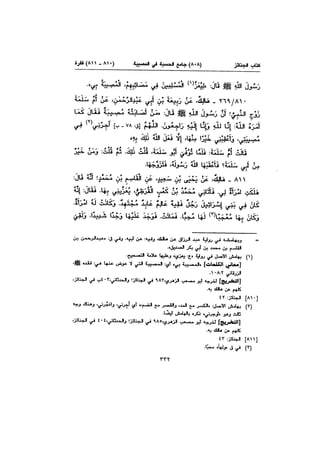 كتاب الجنائز (٨٠٨) جامع الحسبة في المصيبة (٨١٠ - ٨١١) فقرة
رَسُولَ اللهِ ﷺ قَالَ: «لِيُعَزِّ(١) الْمُسْلِمِينَ فِي مَصَائِبِهِمُ، الْمُصِيبَةُ بِي».
٢٦٩/٨١٠ - مَالِكٌ، عَنْ رَبِيعَةَ بْنِ أَبِي عَبْدِالرَّحْمٰنِ، عَنْ أُمِّ سَلَمَةَ
زَوْجِ النَّبِيِّ؛ أَنَّ رَسُولَ اللهِ ﷺ قَالَ: مَنْ أَصَابَتْهُ مُصِيبَةٌ فَقَالَ كَمَا
أَمَرَهُ اللهُ: إِنَّا لِلهِ وَإِنَّا إِلَيْهِ رَاجِعُونَ. اللَّهُمَّ [ق: ٧٨ - ب] أْجُرْنِي(٢) فِي
مُصِيبَتِي، وَأَعْقِبْنِي خَيْرًا مِنْهَا، إِلَّا فَعَلَ اللهُ ذٰلِكَ بِهِ».
قَالَتْ أُمُّ سَلَمَةَ: فَلَمَّا تُوُفِّيَ أَبُو سَلَمَةَ، قُلْتُ ذٰلِكَ. ثُمَّ قُلْتُ: وَمَنْ خَيْرٌ
مِنْ أَبِي سَلَمَةَ؟ فَأَعْقَبَهَا اللهُ رَسُولَهُ، فَتَزَوَّجَهَا.
٨١١ - مَالِكٌ، عَنْ يَحْيَى بْنِ سَعِيدٍ، عَنِ الْقَاسِمِ بْنِ مُحَمَّدٍ؛ أَنَّهُ قَالَ:
هَلَكَتِ امْرَأَةٌ لِي. فَأَتَانِي مُحَمَّدُ بْنُ كَعْبٍ الْقُرَظِيُّ، يُعَزِّينِي بِهَا. فَقَالَ: إِنَّهُ
كَانَ فِي بَنِي إِسْرَائِيلَ رَجُلٌ فَقِيهٌ عَالِمٌ عَابِدٌ مُجْتَهِدٌ. وَكَانَتْ لَهُ امْرَأَةٌ
وَكَانَ بِهَا مُعْجَبًا(٣) لَهَا مُحِبًّا. فَمَاتَتْ. فَوَجَدَ عَلَيْهَا وَجْدًا شَدِيدًا. وَلَقِيَ
= وبهامشه في رواية عبد الرزاق عن مالك، وفيه: عن أبيه. وفي ق: «عبدالرحمن بن
القاسم بن محمد بن أبي بكر الصديق».
(١) بهامش الأصل: في رواية «ع: يعزي»، وعليها علامة التصحيح.
[معاني الكلمات] «المصيبة بي» أي: المصيبة التي لا عوض عنها هي: فقده ﷺ،
الزرقاني ١٠٨:٢.
[التخريج] أخرجه أبو مصعب الزهري، ٩٨٣ في الجنائز؛ والحدثاني، ٤٠٢أ في الجنائز،
كلهم عن مالك به.
[٨١٠] الجنائز: ٤٢
(٢) بهامش الأصل: بالكسر مع المد، والقصر مع الضم
[التخريج] أخرجه أبو مصعب الزهري، ٩٨٤ في الجنائز؛ والحدثاني، ٤٠٤ في الجنائز،
كلهم عن مالك به.
[٨١١] الجنائز: ٤٣
(٣) في ق
٣٣٢